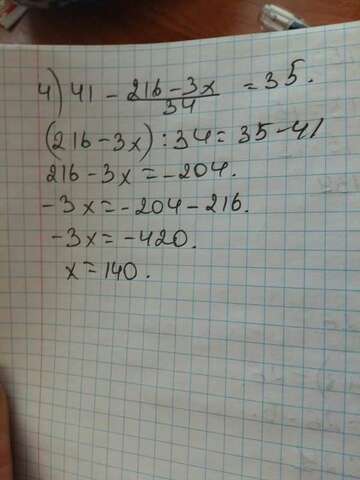 4) 41 - 216-3x/34 = 35.
(216-3x):34=35-41
216-3x=-204.
-3x=-204-216.
-3x=-420.
x=140.